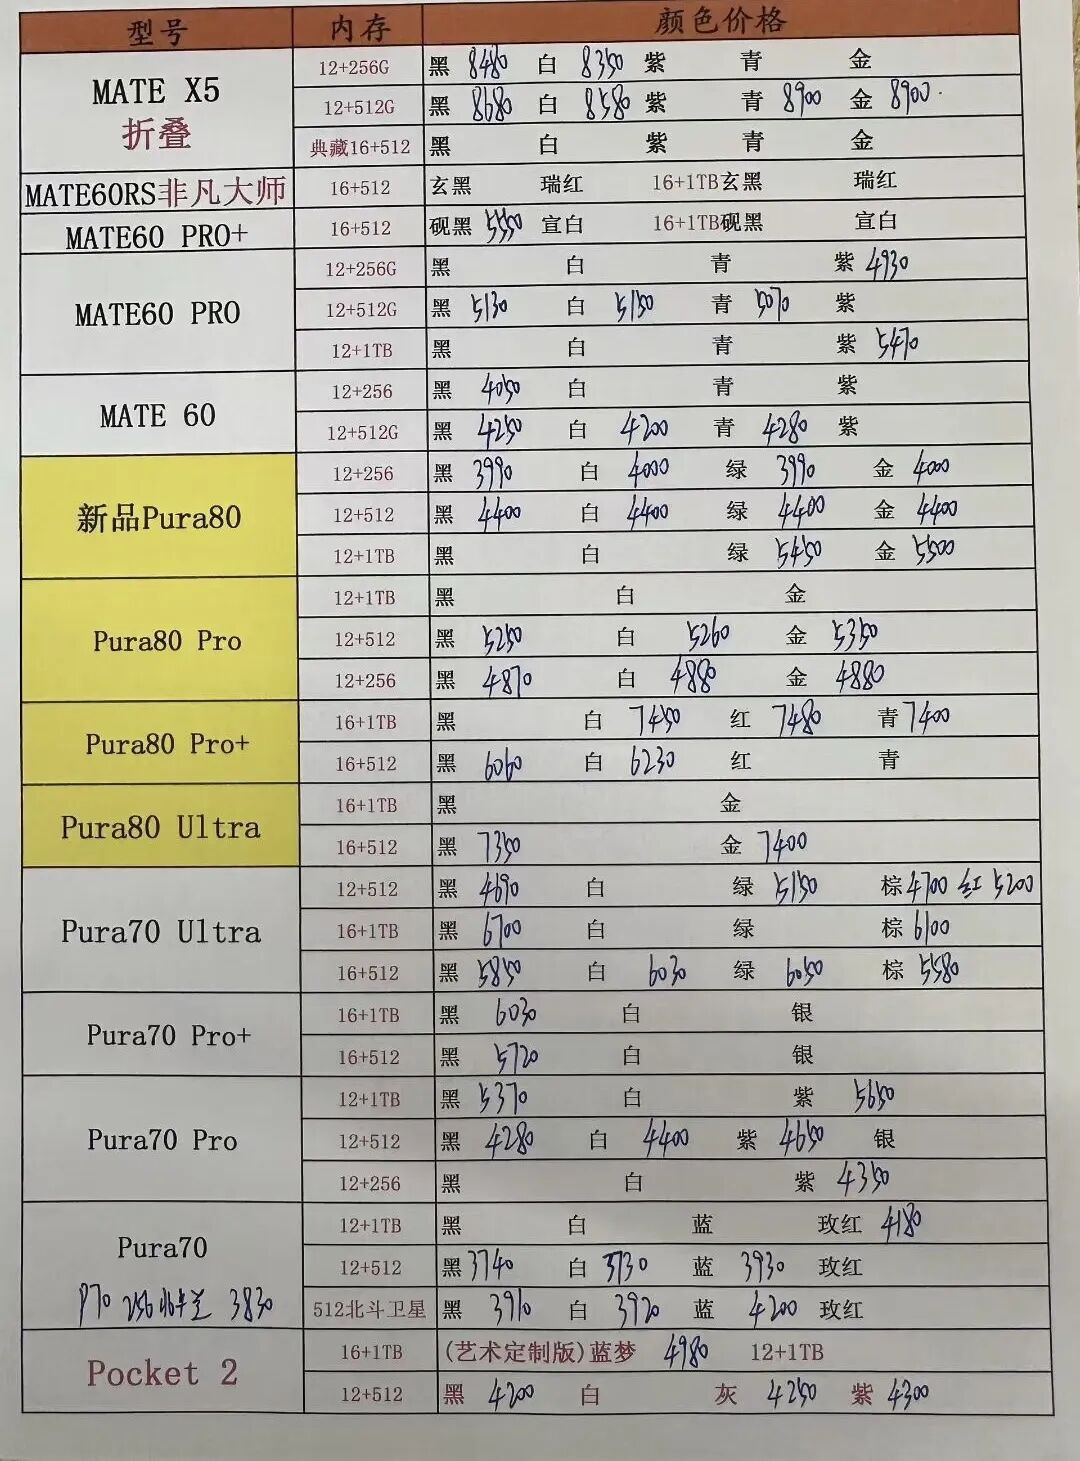 型号 内存 颜色价格
MATE X5
折叠
12+256G 黑 8480 白 8350 紫 青 金
12+512G 黑 8680 白 8580 紫 青 8900 金 8900
典藏16+512 黑 白 紫 青 金
MATE60RS非凡大师 16+512 玄黑 瑞红 16+1TB玄黑 瑞红
MATE60 PRO+ 16+512 砚黑 5550 宣白 16+1TB砚黑 宣白
MATE60 PRO
12+256G 黑 白 青 紫 4930
12+512G 黑 5130 白 5150 青 5070 紫
12+1TB 黑 白 青 紫 5470
MATE 60
12+256 黑 4050 白 青 紫
12+512G 黑 4250 白 4200 青 4280 紫
新品Pura80
12+256 黑 3990 白 4000 绿 3990 金 4000
12+512 黑 4400 白 4400 绿 4400 金 4400
12+1TB 黑 白 绿 5450 金 5500
Pura80 Pro
12+1TB 黑 白 金
12+512 黑 5250 白 5260 金 5350
12+256 黑 4870 白 4880 金 4880
Pura80 Pro+
16+1TB 黑 白 7450 红 7480 青 7400
16+512 黑 6060 白 6230 红 青
Pura80 Ultra
16+1TB 黑 金
16+512 黑 7350 金 7400
Pura70 Ultra
12+512 黑 4690 白 绿 5150 棕 4700 红 5200
16+1TB 黑 6700 白 绿 棕 6100
16+512 黑 5850 白 6030 绿 6050 棕 5580
Pura70 Pro+
16+1TB 黑 6030 白 银
16+512 黑 5720 白 银
Pura70 Pro
12+1TB 黑 5370 白 紫 5650
12+512 黑 4280 白 4400 紫 4650 银
12+256 黑 白 紫 4350
Pura70
P70 256北斗兰 3830
12+1TB 黑 白 蓝 玫红 4180
12+512 黑 3740 白 3730 蓝 3930 玫红
512北斗卫星 黑 3910 白 3920 蓝 4200 玫红
Pocket 2
16+1TB (艺术定制版)蓝梦 4980 12+1TB
12+512 黑 4200 白 灰 4250 紫 4300